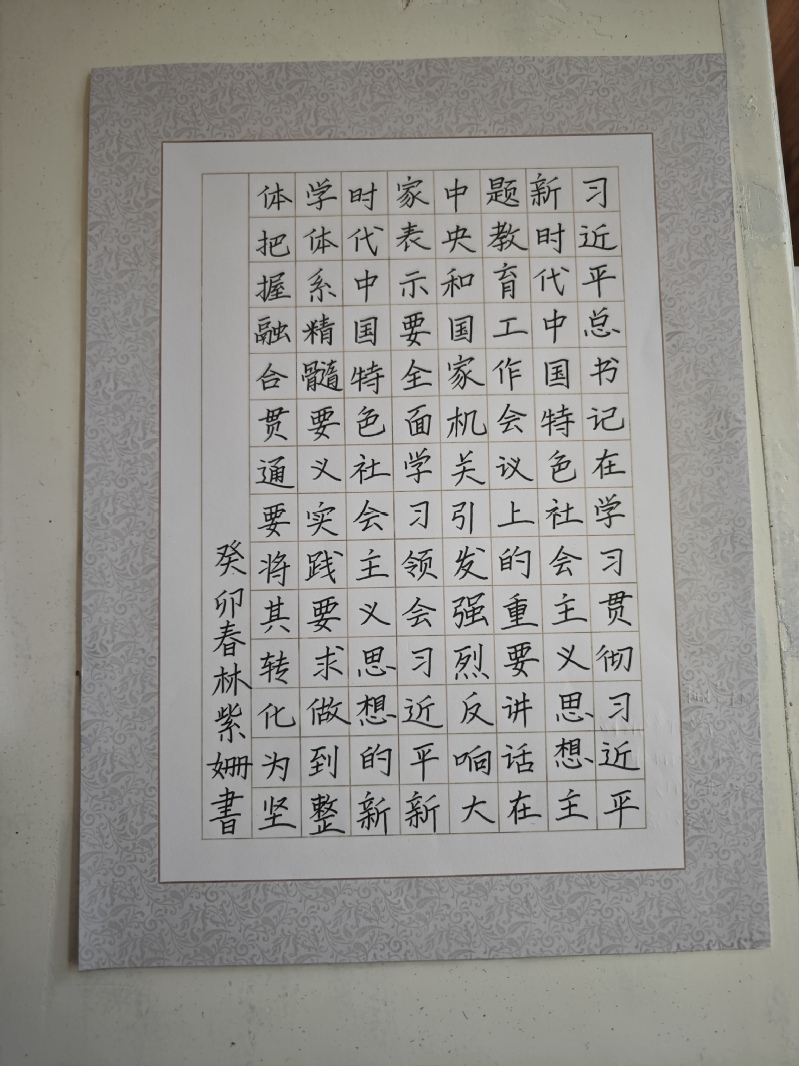 习近平总书记在学习贯彻习近平
新时代中国特色社会主义思想主
题教育工作会议上的重要讲话在
中央和国家机关引发强烈反响大
家表示要全面学习领会习近平新
时代中国特色社会主义思想的新
学体系精髓要义实践要求做到整
体把握融合贯通要将其转化为坚
癸卯春林紫姗書